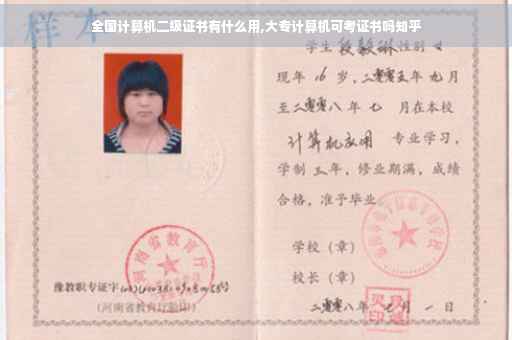 全国计算机二级证书有什么用,大专计算机可考证书吗知乎
样本
学生 段毅琳 性别 女
现年 16 岁，二零零五年 九 月
至二零零八年 七 月在本校
计算机应用 专业学习，
学制 三 年，修业期满，成绩
合格，准予毕业
学校（章）
校长（章）
二零零八年 月 一 日
河南省教育厅
豫教职专证字
(河南省教育厅验印)